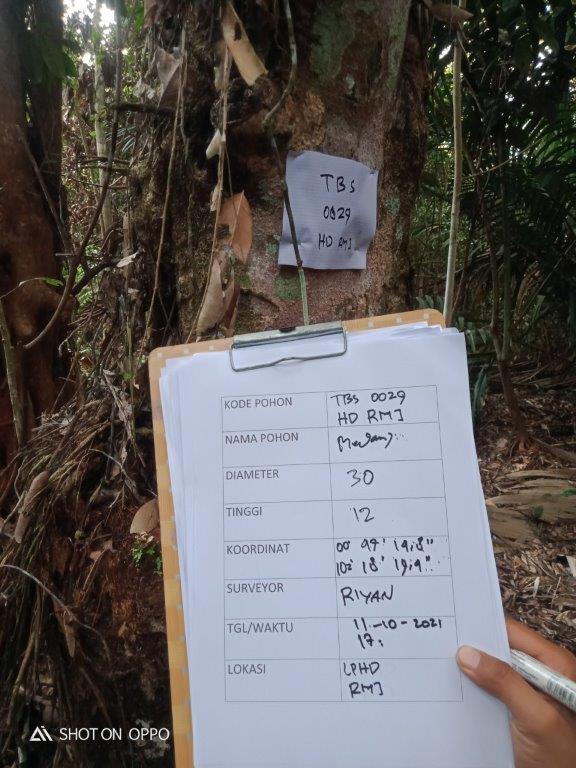 TBS
0029
HD RMJ
KODE POHON TBS 0029
HD RMJ
NAMA POHON
DIAMETER 30
TINGGI 12
KOORDINAT
SURVEYOR RIYAN
TGL/WAKTU 11-10-2021
17:
LOKASI LPHD
RMJ
SHOT ON OPPO